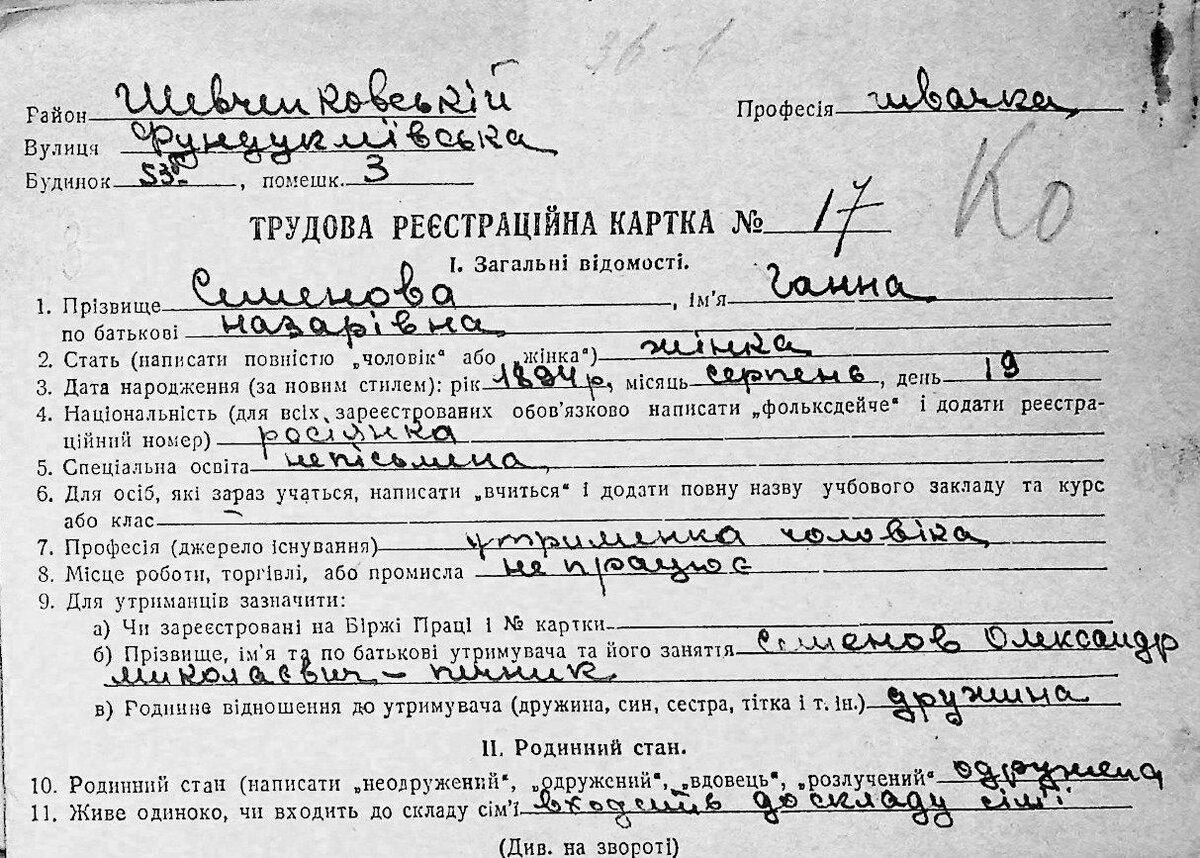 36-1
Район Шевченковській Професія швачка
Вулиця Фундукліївська
Будинок 53б, помешк. 3
Ко
ТРУДОВА РЕЄСТРАЦІЙНА КАРТКА № 17
I. Загальні відомості.
1. Прізвище Семенова, ім'я Ганна
по батькові назарівна
2. Стать (написати повністю „чоловік“ або „жінка“) жінка
3. Дата народження (за новим стилем): рік 1894 р, місяць серпень, день 19
4. Національність (для всіх зареєстрованих обов'язково написати „фольксдейче“ і додати реєстра-
ційний номер) росіянка
5. Спеціальна освіта неписьмена
6. Для осіб, які зараз учаться, написати „вчиться“ і додати повну назву учбового закладу та курс
або клас
7. Професія (джерело існування) утрименка чоловіка
8. Місце роботи, торгівлі, або промисла не працює
9. Для утриманців зазначити:
а) Чи зареєстровані на Біржі Праці і № картки
б) Прізвище, ім'я та по батькові утримувача та його заняття Семенов Олександр
миколаєвич - пічник
в) Родинне відношення до утримувача (дружина, син, сестра, тітка і т. ін.) дружина
II. Родинний стан.
10. Родинний стан (написати „неодружений“, „одружений“, „вдовець“, „розлучений“ одружена
11. Живе одиноко, чи входить до складу сім'ї входить до складу сім'ї
(Див. на звороті)